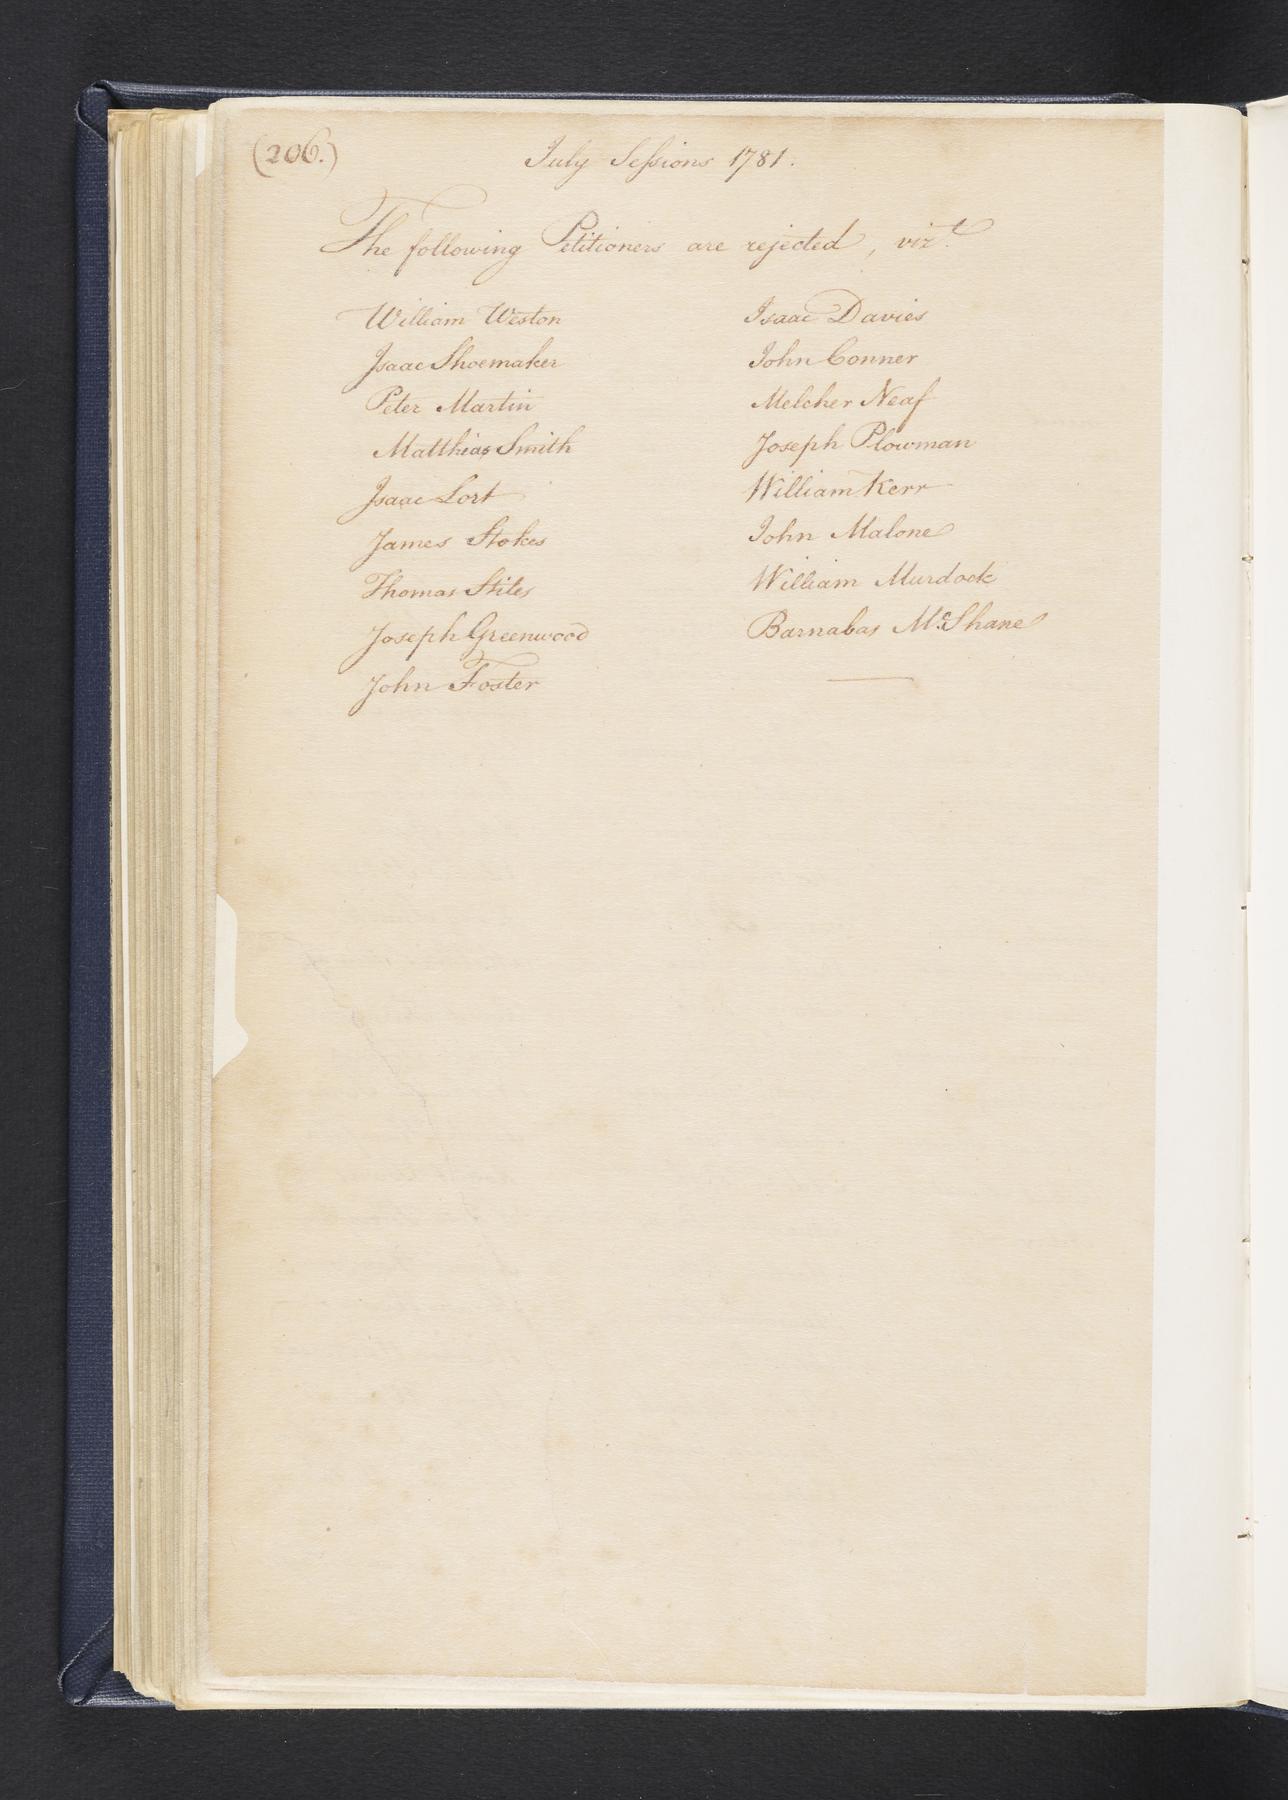 (206.)
July Sessions 1781.
The following Petitioners are rejected, vizt.
William Weston
Isaac Shoemaker
Peter Martin
Matthias Smith
Isaac Lort
James Stokes
Thomas Stiles
Joseph Greenwood
John Foster
Isaac Davies
John Conner
Melcher Neaf
Joseph Plowman
William Kerr
John Malone
William Murdock
Barnabas McShane